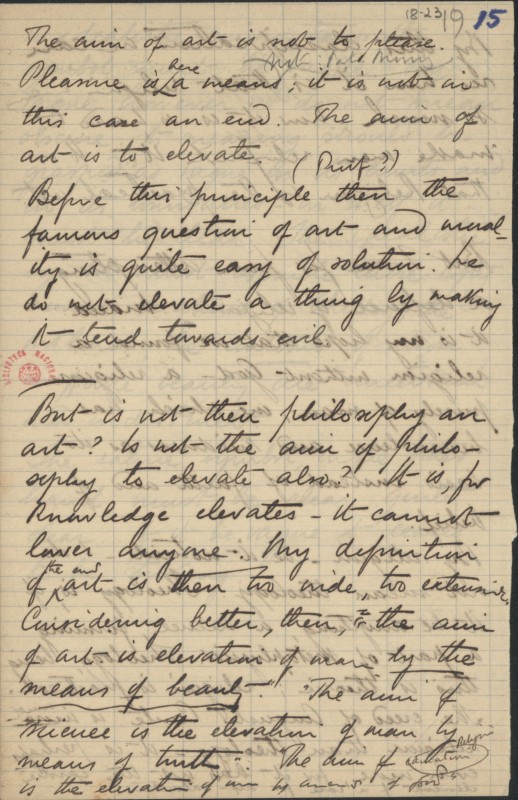 18-23 19 15
The aim of art is not to please.
Pleasure is here a means; it is not in
this case an end. The aim of
art is to elevate. (Proof??)
Before this principle then the
famous question of art and moral-
ity is quite easy of solution. We
do not elevate a thing by making
it tend towards evil.
But is not then philosophy an
art? Is not the aim of philo-
sophy to elevate also? It is, for
knowledge elevates - it cannot
lower anyone. My definition
of the end art is then too wide, too extensive.
Considering better, then, the aim
of art is elevation of man by the
means of beauty." "The aim of
science is the elevation of man by
means of truth". "The aim of Religion
is the elevation of man by means of good